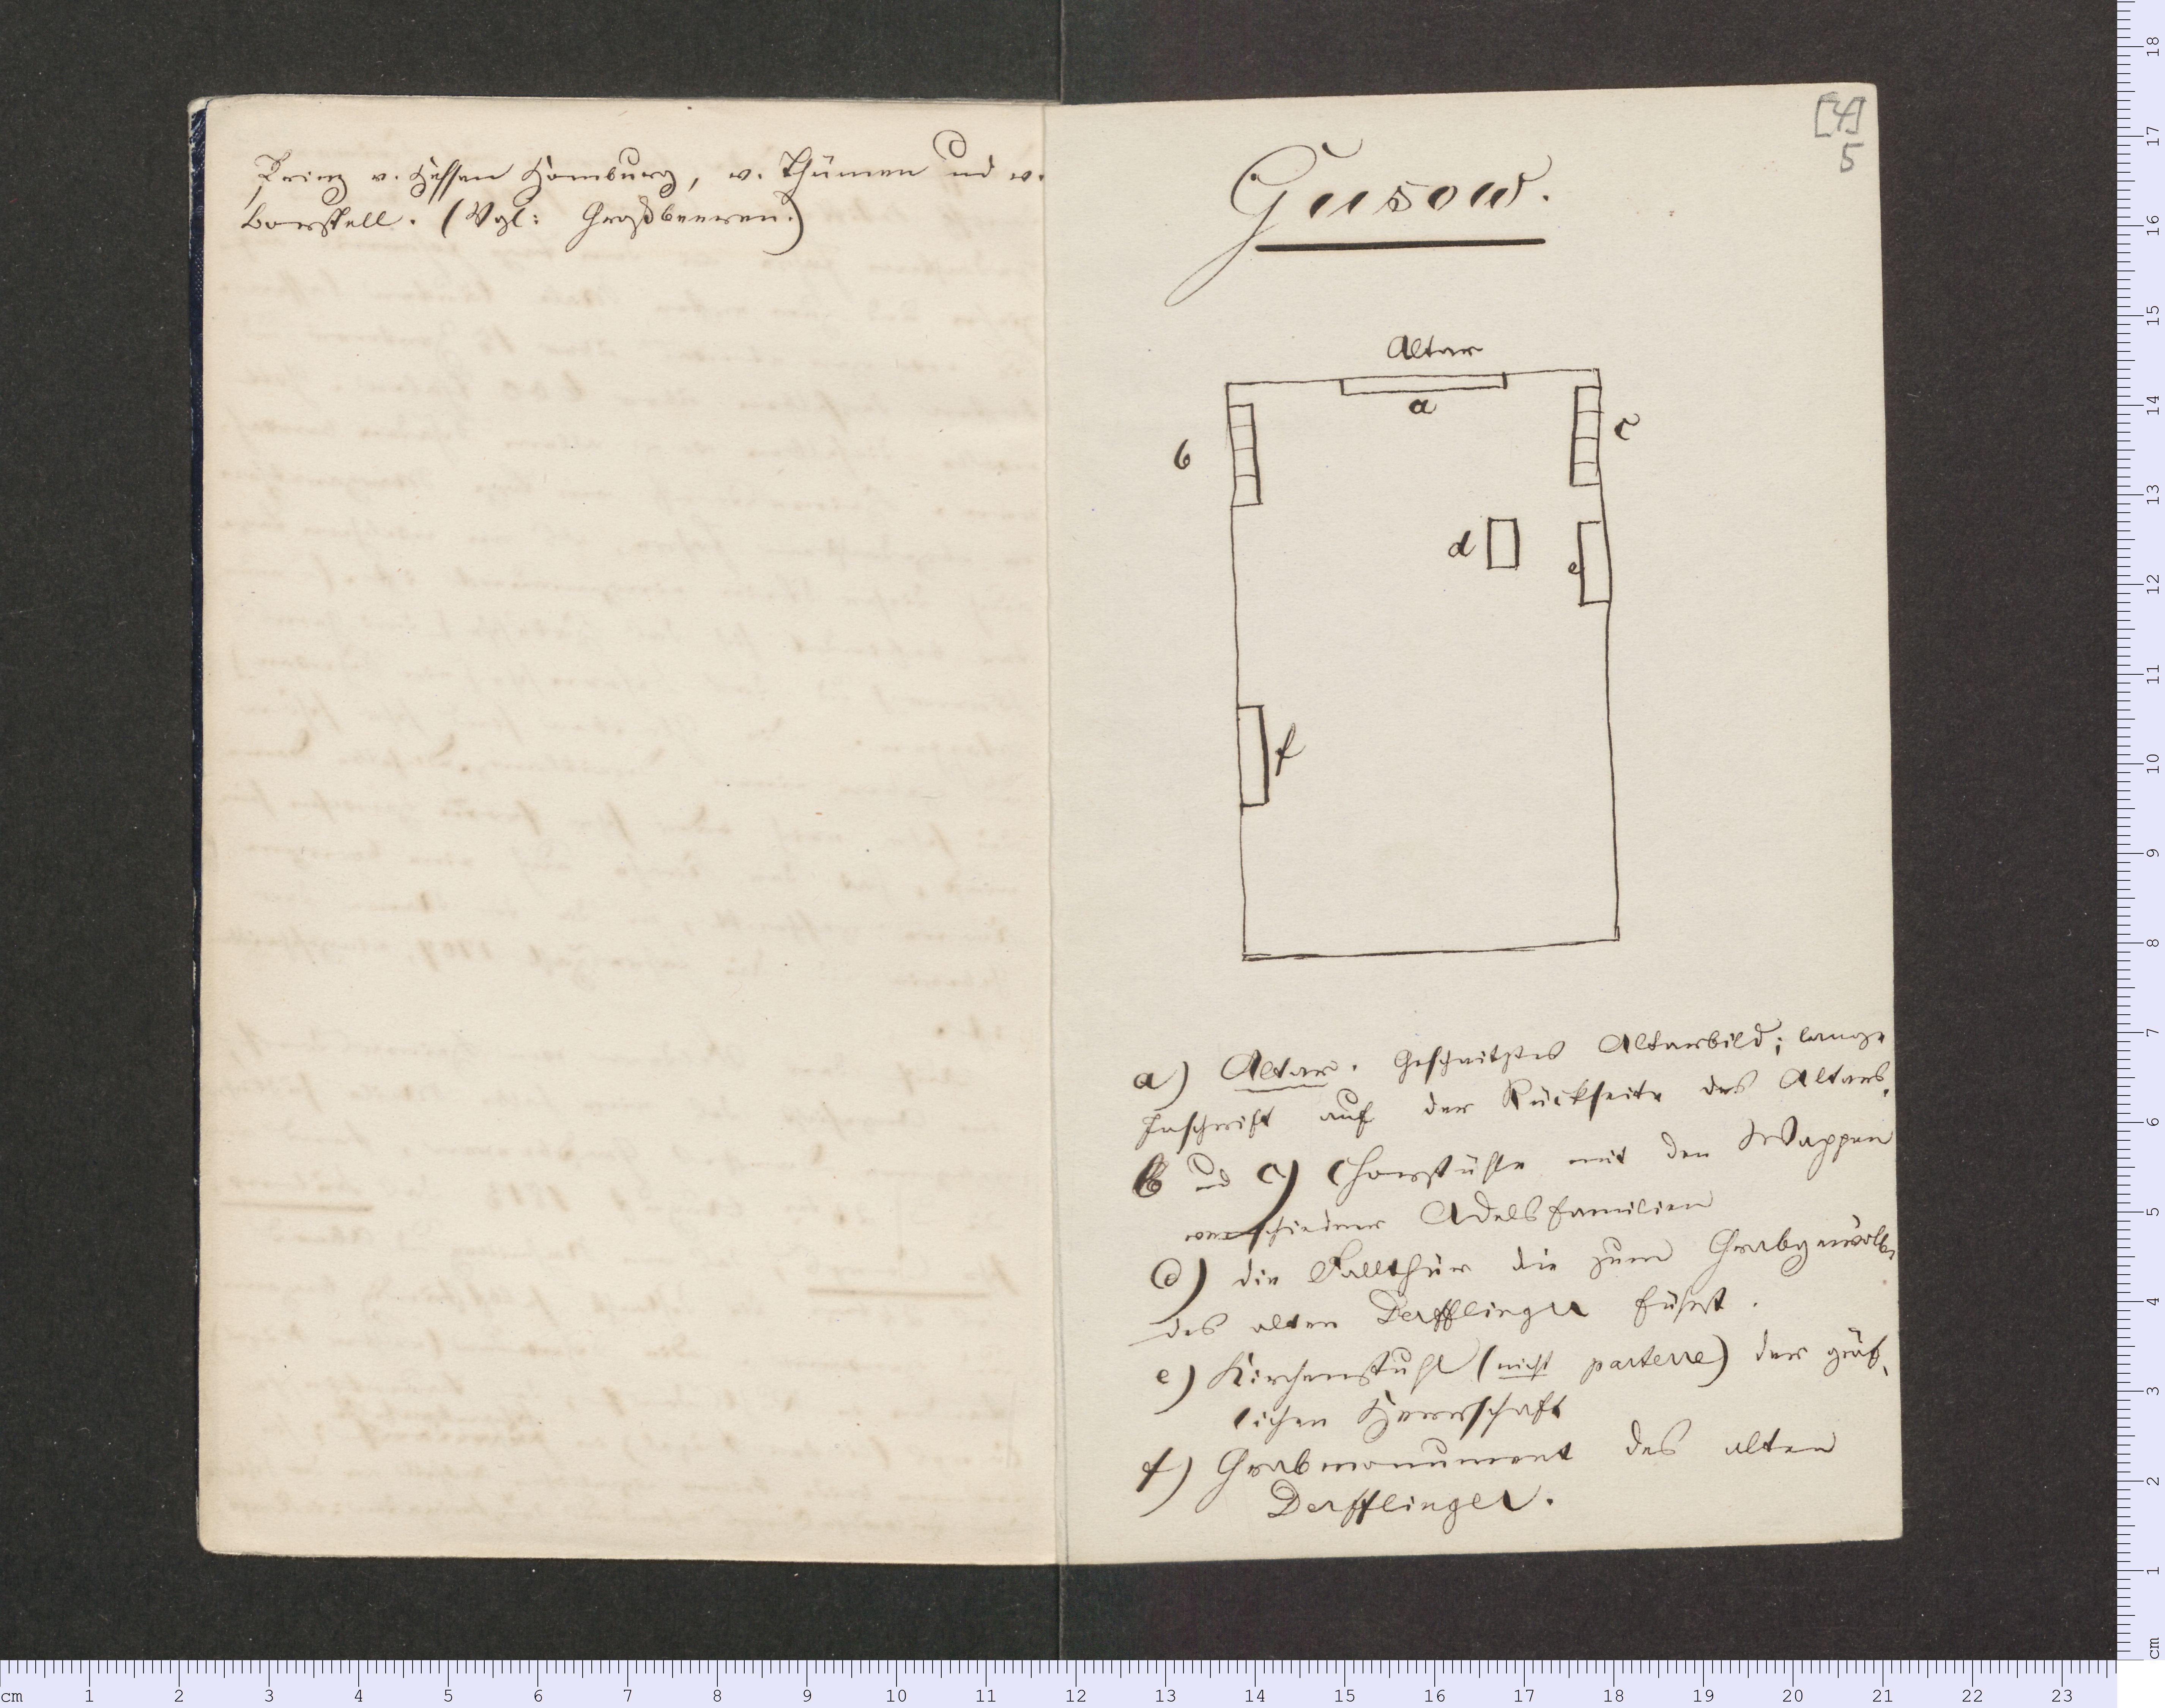 Prinz v. Hessen Homburg, v. Thümen und v.
Borstell. (Vgl: Großbeeren.)
[4]
5
Gusow.
Altar
a
b
c
d
e
f
a) Altar. Geschnitztes Altarbild; lange
Inschrift auf der Rückseite des Altars.
b und c) Chorstühle mit den Wappen
verschiedner Adelsfamilien
d) die Fallthür die zum Grabgewölbe
des alten Derfflinger führt.
e) Kirchenstuhl (nicht parterre) der gräf-
lichen Herrschaft
f) Grabmonument des alten
Derfflinger.
cm 1 2 3 4 5 6 7 8 9 10 11 12 13 14 15 16 17 18 19 20 21 22 23
cm 1 2 3 4 5 6 7 8 9 10 11 12 13 14 15 16 17 18